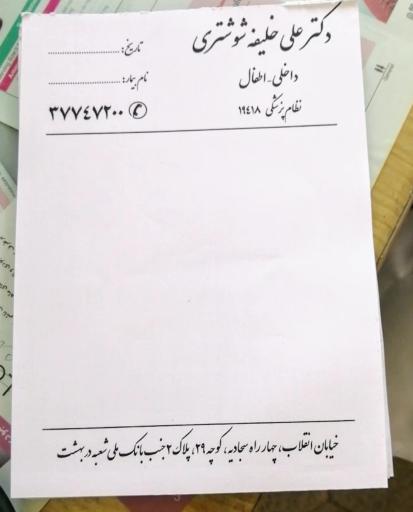 دکتر علی خلیفه شوشتری
داخلی - اطفال
نظام پزشکی ۱۹۴۱۸
تاریخ: ................................
نام بیمار: ................................
۳۷۷۴۷۲۰۰
خیابان انقلاب، چهار راه سجادیه، کوچه ۲۹، پلاک ۲ جنب بانک ملی شعبه در بهشت